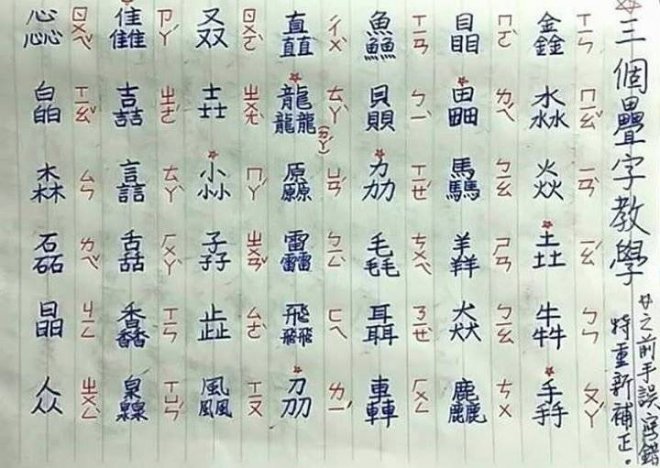 三個疊字教學
之前手誤寫錯
特重新補正。
鑫 淼 焱 垚 犇 掱
ㄒㄧㄣ ㄇㄧㄠˇ ㄧㄢˋ ㄧㄠˊ ㄅㄣ ㄆㄚˊ
瞐 畾 驫 羴 猋 麤
ㄇㄛˋ ㄌㄟˊ ㄅㄧㄠ ㄕㄢ ㄅㄧㄠ ㄘㄨ
鱻 贔 劦 毳 聶 轟
ㄒㄧㄢ ㄅㄧˋ ㄒㄧㄝˊ ㄘㄨㄟˋ ㄋㄧㄝˋ ㄏㄨㄥ
矗 龘 厵 靐 飝 刕
ㄔㄨˋ ㄊㄚˋ(ㄉㄚˊ) ㄩㄢˊ ㄅㄧㄥˋ ㄈㄟ ㄌㄧˊ
叒 壵 尛 孨 歮 飍
ㄖㄨㄛˋ ㄓㄨㄤˋ ㄇㄚˊ ㄓㄨㄢˇ ㄙㄜˋ ㄒㄧㄡ
雥 嚞 譶 舙 馫 灥
ㄗㄚˊ ㄓㄜˊ ㄊㄚˋ ㄏㄨㄚˋ ㄒㄧㄣ ㄒㄩㄣˊ
惢 皛 森 磊 晶 众
ㄖㄨㄟˇ ㄒㄧㄠˇ ㄙㄣ ㄌㄟˇ ㄐㄧㄥ ㄓㄨㄥˋ